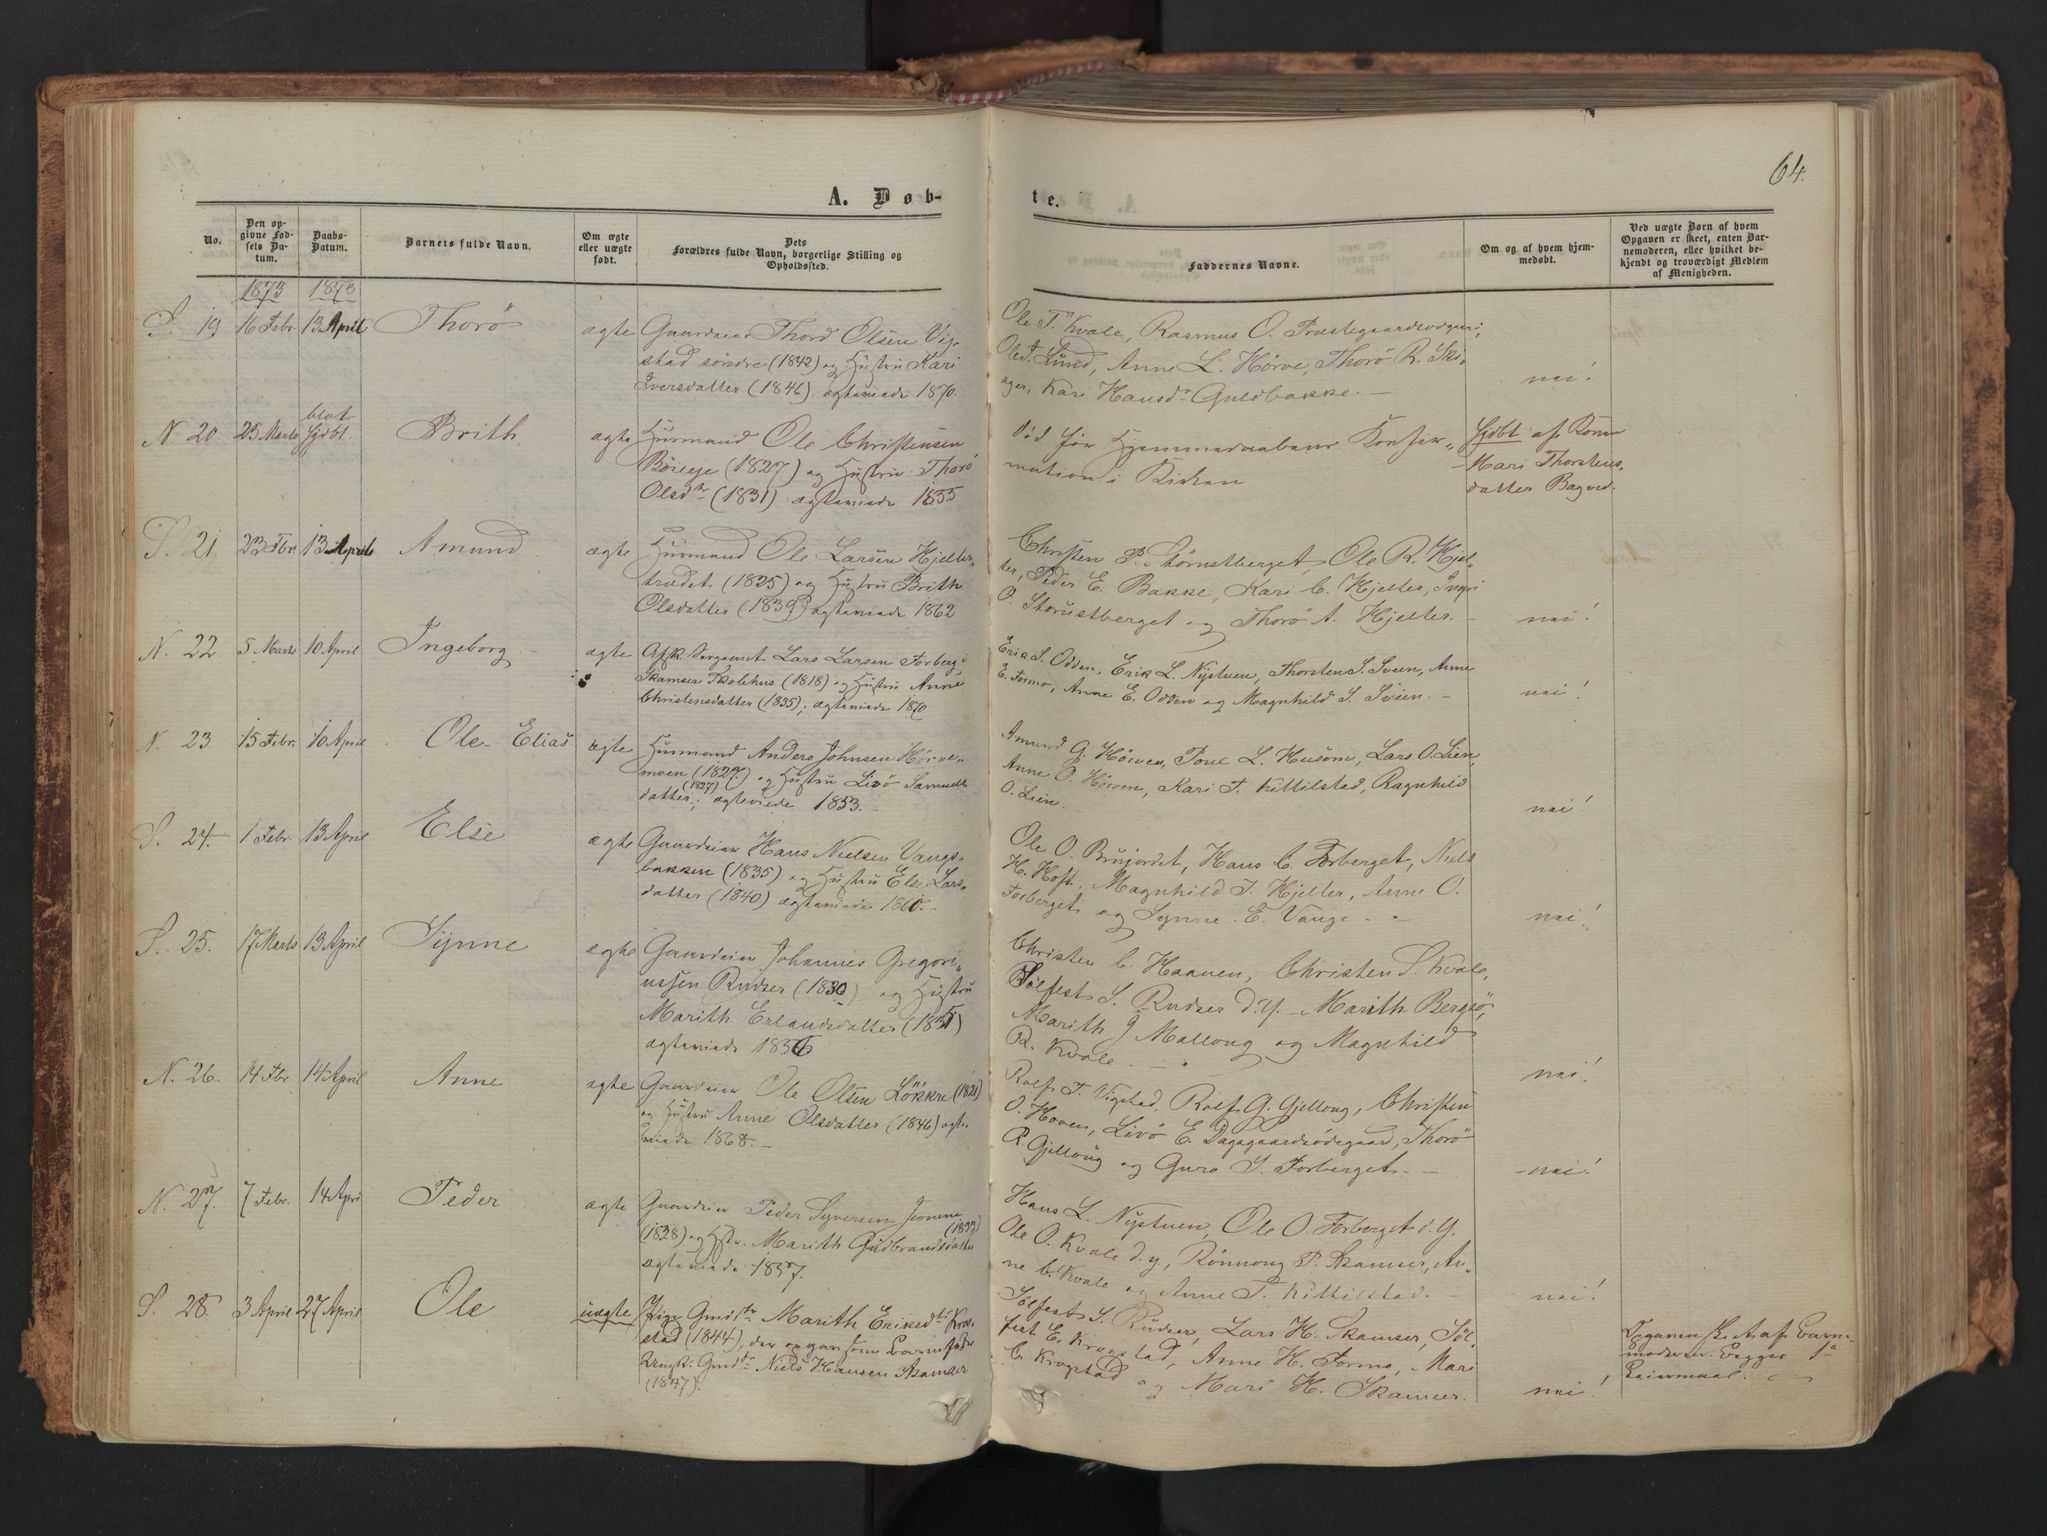 64.
A. Døb-
te.
No.
Den op-
givne Fød-
sels Da-
tum.
Daabs-
Datum.
Barnets fulde Navn.
Om ægte
eller uægte
født.
Dets
Forældres fulde Navn, borgerlige Stilling og
Opholdssted.
Faddernes Navne.
Om og af hvem hjem-
medøbt.
Ved uægte Børn af hvem
Opgaven er skeet, enten Bar-
nemoderen, eller hvilket be-
kjendt og troværdigt Medlem
af Menigheden.
1873 1873
S. 19 16 Febr. 13 April Thorö ægte Gaardeier Thord Olsen Vig-
stad söndre (1842) og Hustru Kari
Iversdatter (1846) ægteviede 1870.
Ole T. Kvale, Rasmus O. Præstegaardsødegaard,
Ole T. Lund, Anne L. Hørve, Thorö R. Ski-
ager, Kari Hansd. Guldbakke. —
nei!
N 20. 25 Marts blot hjdbt. Brith ægte Husmand Ole Christensen
Böreeje (1827) og Hustru Thorö
Olsdr (1831) ægteviede 1855
Död för Hjemmedaabens Konfir-
mation i Kirken
hjdbt af Konen
Mari Thorstens-
datter Bagved.
S. 21. 23 Fbr. 13 April Amund ægte Husmand Ole Larsen Hjelter-
trædet (1825) og Hustru Brith
Olsdatter (1839) ægteviede 1862
Christen P. Stornstberget, Ole R. Hjel-
ter, Peder E. Bakke, Kari C. Hjelter, Ingri
O. Storustberget og Thorö A. Hjelter. —
nei!
N. 22 5 Marts 10 April Ingeborg ægte Afsk. Sergeant Lars Larsen Forberg i
Skamser Skolehus (1818) og Hustru Anne
Christensdatter (1835), ægteviede 1870
Erik S. Odden, Erik L. Nystuen, Thorsten S. Sveen, Anne
E. Formo, Anne E. Odden og Magnhild S. Sveen. —
nei!
N. 23. 15 Febr. 10 April Ole Elias ægte Husmand Anders Johnsen Hörve-
moen (1827) og Hustru Livö Samuels-
datter (1827), ægteviede 1853. —
Amund G. Hörven, Poul L. Husom, Lars O. Lien,
Anne O. Hörven, Kari T. Kittilstad, Ragnhild
O. Lien. —
nei!
S. 24. 1 Febr. 13 April Else ægte Gaardeier Hans Nielsen Vangs-
bakken (1835) og Hustru Else Lars-
datter (1840) ægteviede 1860. —
Ole O. Brujordet, Hans C. Forberget, Niels
H. Hoft, Magnhild I. Hjelter, Anne O.
Forberget og Synne E. Vange. —
nei!
S. 25. 17 Marts 13 April Synne ægte Gaardeier Johannes Gregori-
ussen Rudser (1830) og Hustru
Marith Erlandsdatter (1831)
ægteviede 1856
Christen C. Haaven, Christen S. Kvale,
Sølfest S. Rudser d.y. Marith Bergsö,
Marith J Mallong og Magnhild
R. Kvale —
nei!
N. 26. 14 Fbr. 14 April Anne ægte Gaardeier Ole Olsen Lökkre (1821)
og Hustru Anne Olsdatter (1846) ægte-
viede 1868. —
Rolf T. Vigstad, Rolf G. Gjellong, Christen
O. Hoven, Livö E. Dagsgaardsödegaard, Thorö
R. Gjellong og Guro S. Forberget. —
nei!
N. 27. 7 Febr. 14 Apri Peder ægte Gaardeier Peder Syversen Jonene
(1828) og Hstr. Marith Gudbrandsdatter (1832)
ægteviede 1857.
Hans L. Nystuen, Ole O. Forberget d. Y.
Ole O. Kvale d. y., Rönnoug P. Skamser, An-
ne C. Kvale og Anne T. Kittilstad. —
nei!
S. 28. 3 April 27 April Ole uægte Pige Gmdsdtr Marith Eriksdtr Krog-
stad (1844), der opgav som Barnefader
Ungk. Gmds. Niels Hansen Skamser
(1847).
Sølfest S. Rudser, Lars H. Skamser, Söl-
fest E. Krogstad, Anne H. Formo, Mari
C. Krogstad og Mari H. Skamser.
nei!
Opgaven sk. af Barne-
moderen. Begges 1ste
Leiermaal.